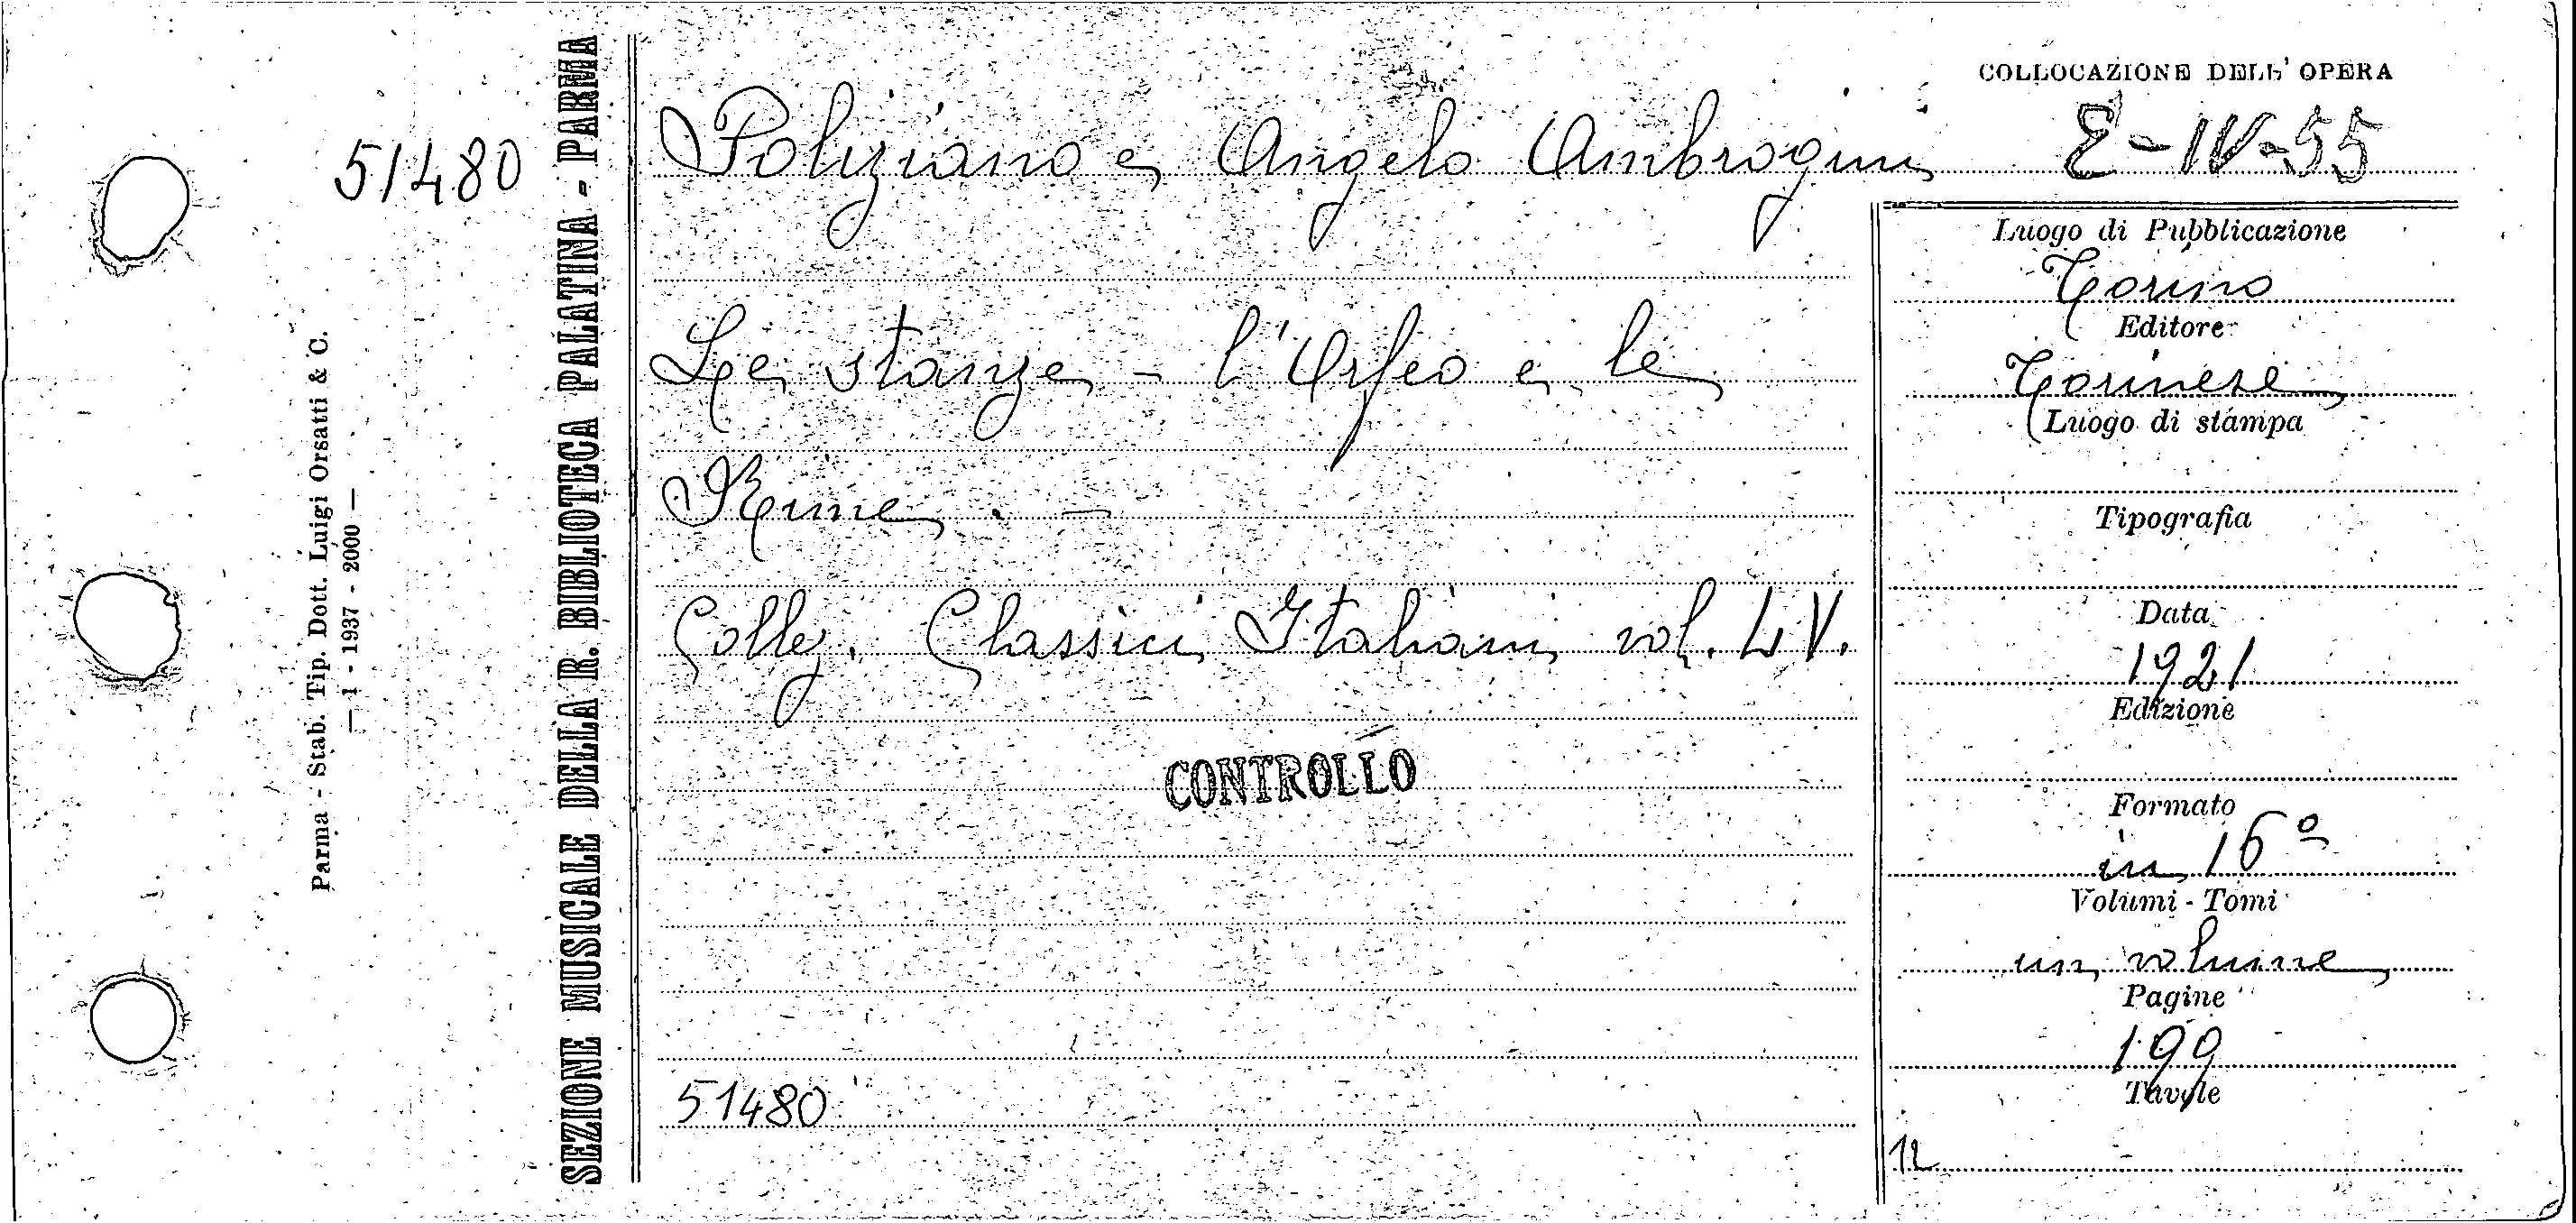 COLLOCAZIONE DELL' OPERA
E-IV-55
51480
Parma - Stab. Tip. Dott. Luigi Orsatti & C.
— 1 - 1937 - 2000 —
SEZIONE MUSICALE DELLA R. BIBLIOTECA PALATINA - PARMA
Poliziano e Angelo Ambrogini
Le stanze - l'Orfeo e le
Rime. -
Colle. Classici Italiani vol. LV.
CONTROLLO
51480
Luogo di Pubblicazione
Torino
Editore
Torinese
Luogo di stampa
Tipografia
Data
1921
Edizione
Formato
in 16º
Volumi - Tomi
un volume
Pagine
199
Tavole
12